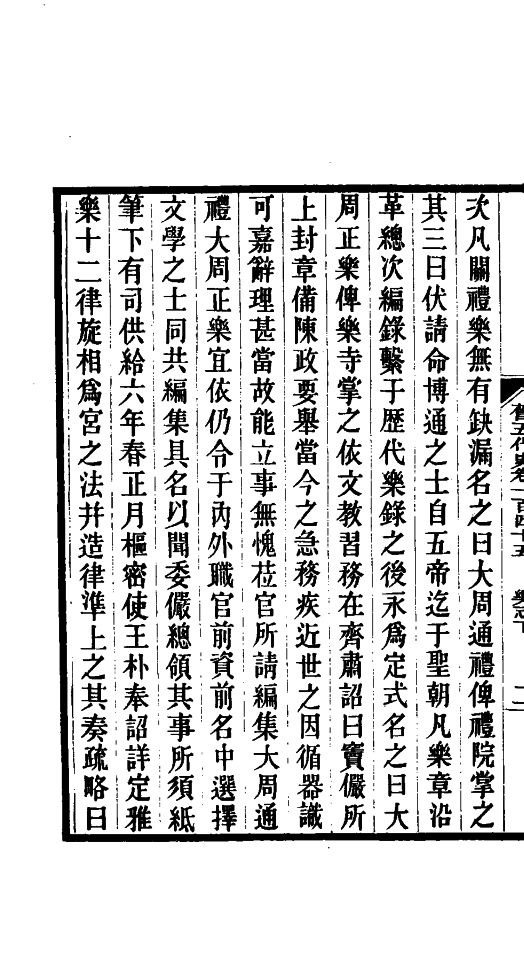 舊五代史卷一百四十五 樂志下 二
次凡關禮樂無有缺漏名之曰大周通禮俾禮院掌之
其三曰伏請命博通之士自五帝迄于聖朝凡樂章沿
革總次編錄繫于歷代樂錄之後永爲定式名之曰大
周正樂俾樂寺掌之依文教習務在齊肅詔曰竇儼所
上封章備陳政要舉當今之急務疾近世之因循器識
可嘉辭理甚當故能立事無愧莅官所請編集大周通
禮大周正樂宜依仍令于內外職官前資前名中選擇
文學之士同共編集具名以聞委儼總領其事所須紙
筆下有司供給六年春正月樞密使王朴奉詔詳定雅
樂十二律旋相爲宮之法并造律準上之其奏疏略曰